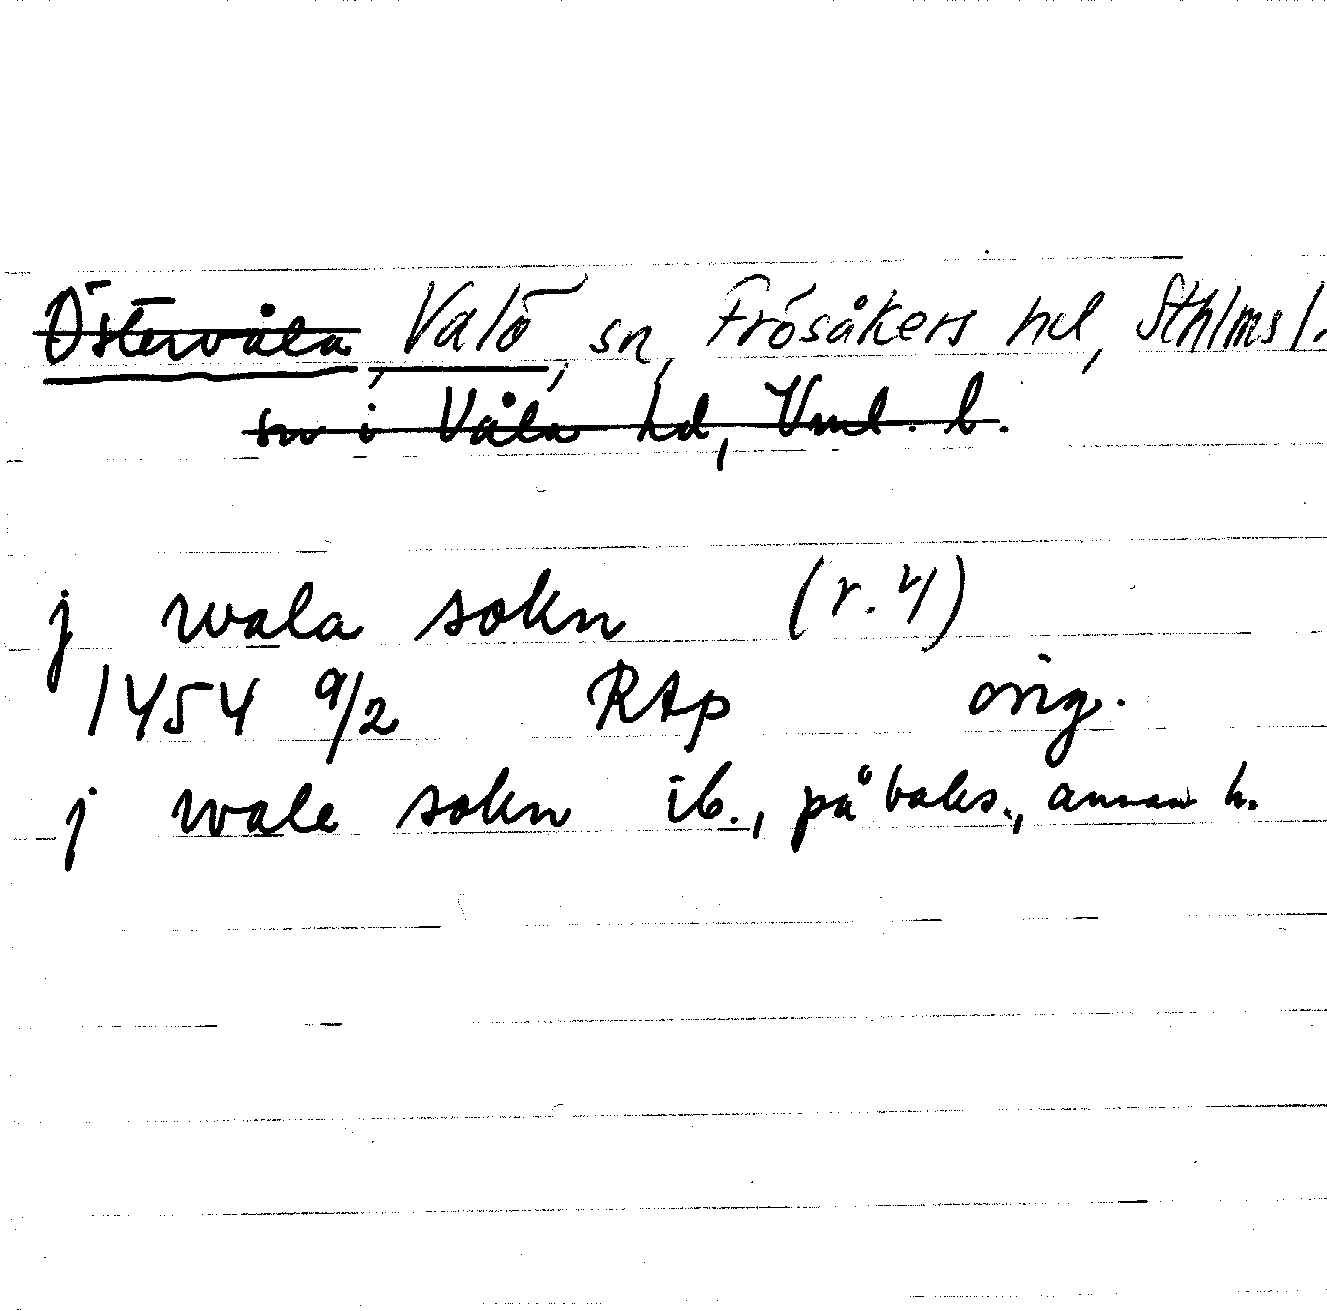 Östervåla, Valö, sn, Frösåkers hd, Sthlms l.
sn i Våla hd, Vml. l.
j wala sokn (r. 4)
1454 9/2 RAp orig.
j wale sokn ib., på baks., annan h.